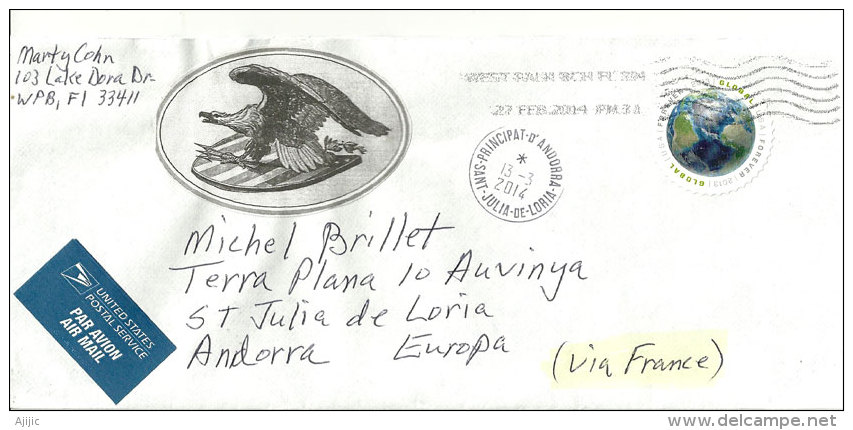 Marty Cohn
103 Lake Dora Dr
WPB, Fl 33411
WEST PALM BCH FL 334
27 FEB 2014 PM 3 L
PRINCIPAT-D'ANDORRA
13-3
2014
SANT-JULIA-DE-LORIA
GLOBAL
FOREVER
GLOBAL
Michel Brillet
Terra Plana 10 Auvinya
ST Julia de Loria
Andorra Europa (Via France)
UNITED STATES
POSTAL SERVICE
PAR AVION
AIR MAIL
Ajijic
delcampe.net